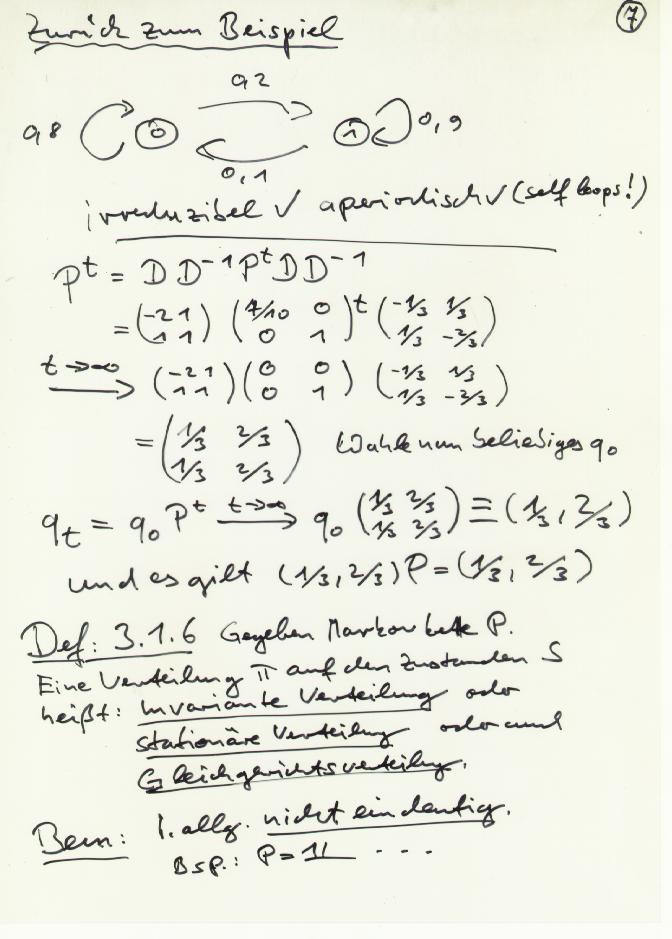 Zurück zum Beispiel 7
0,2
0,8 0 1 0,9
0,1
irreduzibel √ aperiodisch √ (self loops!)
P^t = D D^-1 P^t D D^-1
= (-2 1; 1 1) (7/10 0; 0 1)^t (-1/3 1/3; 1/3 -2/3)
t→∞ (-2 1; 1 1) (0 0; 0 1) (-1/3 1/3; 1/3 -2/3)
= (1/3 2/3; 1/3 2/3) Wähle nun beliebiges q0
q_t = q_0 P^t t→∞ q_0 (1/3 2/3; 1/3 2/3) ≡ (1/3, 2/3)
und es gilt (1/3, 2/3) P = (1/3, 2/3)
Def: 3.1.6 Gegeben Markovkette P.
Eine Verteilung π auf den Zuständen S
heißt: invariante Verteilung oder
stationäre Verteilung oder auch
Gleichgewichtsverteilung.
Bem: I. allg. nicht eindeutig.
Bsp.: P = 1 ...